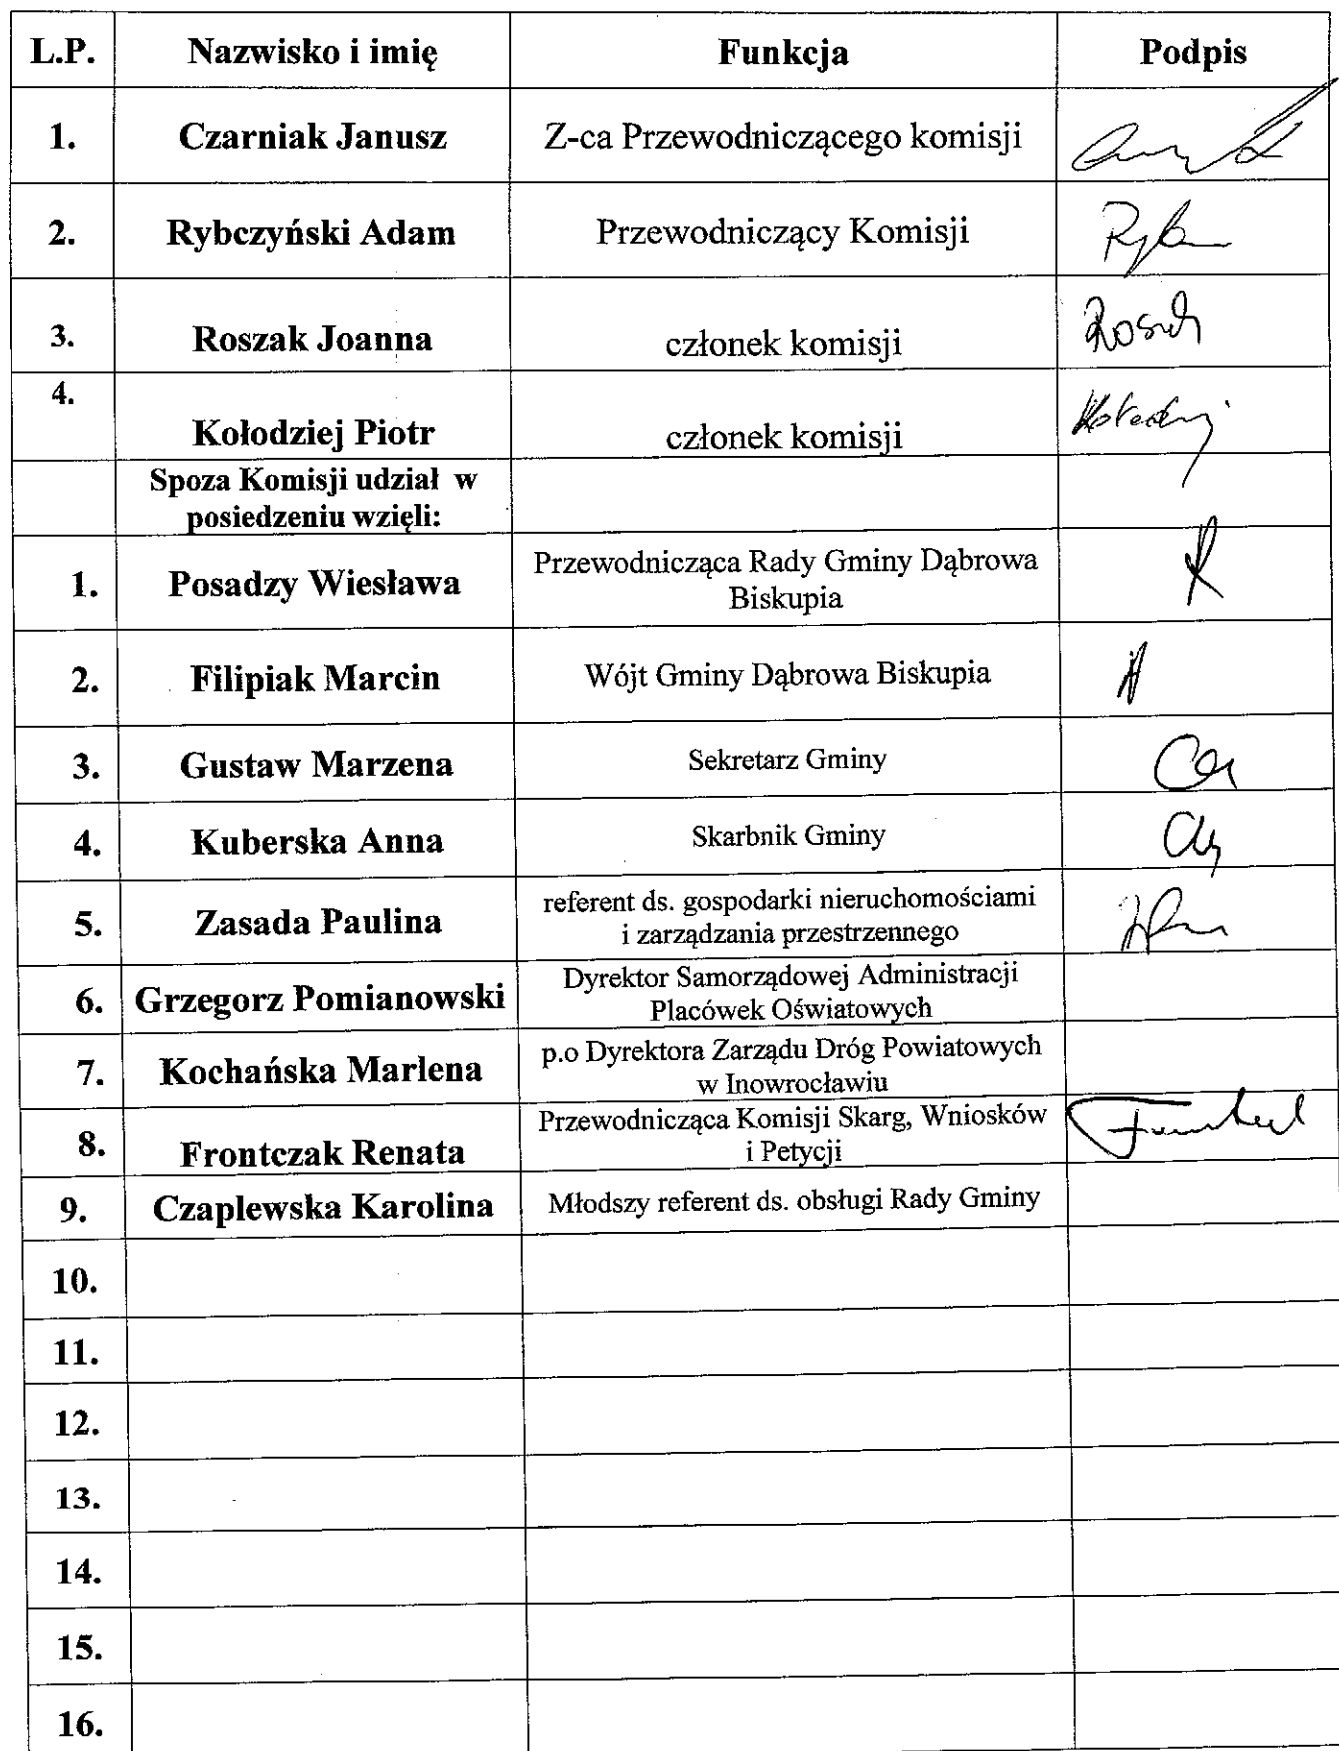 L.P. Nazwisko i imię Funkcja Podpis
1. Czarniak Janusz Z-ca Przewodniczącego komisji
2. Rybczyński Adam Przewodniczący Komisji
3. Roszak Joanna członek komisji
4.
Kołodziej Piotr członek komisji
Spoza Komisji udział w
posiedzeniu wzięli:
1. Posadzy Wiesława Przewodnicząca Rady Gminy Dąbrowa
Biskupia
2. Filipiak Marcin Wójt Gminy Dąbrowa Biskupia
3. Gustaw Marzena Sekretarz Gminy
4. Kuberska Anna Skarbnik Gminy
5. Zasada Paulina referent ds. gospodarki nieruchomościami
i zarządzania przestrzennego
6. Grzegorz Pomianowski Dyrektor Samorządowej Administracji
Placówek Oświatowych
7. Kochańska Marlena p.o Dyrektora Zarządu Dróg Powiatowych
w Inowrocławiu
8. Frontczak Renata Przewodnicząca Komisji Skarg, Wniosków
i Petycji
9. Czaplewska Karolina Młodszy referent ds. obsługi Rady Gminy
10.
11.
12.
13.
14.
15.
16.